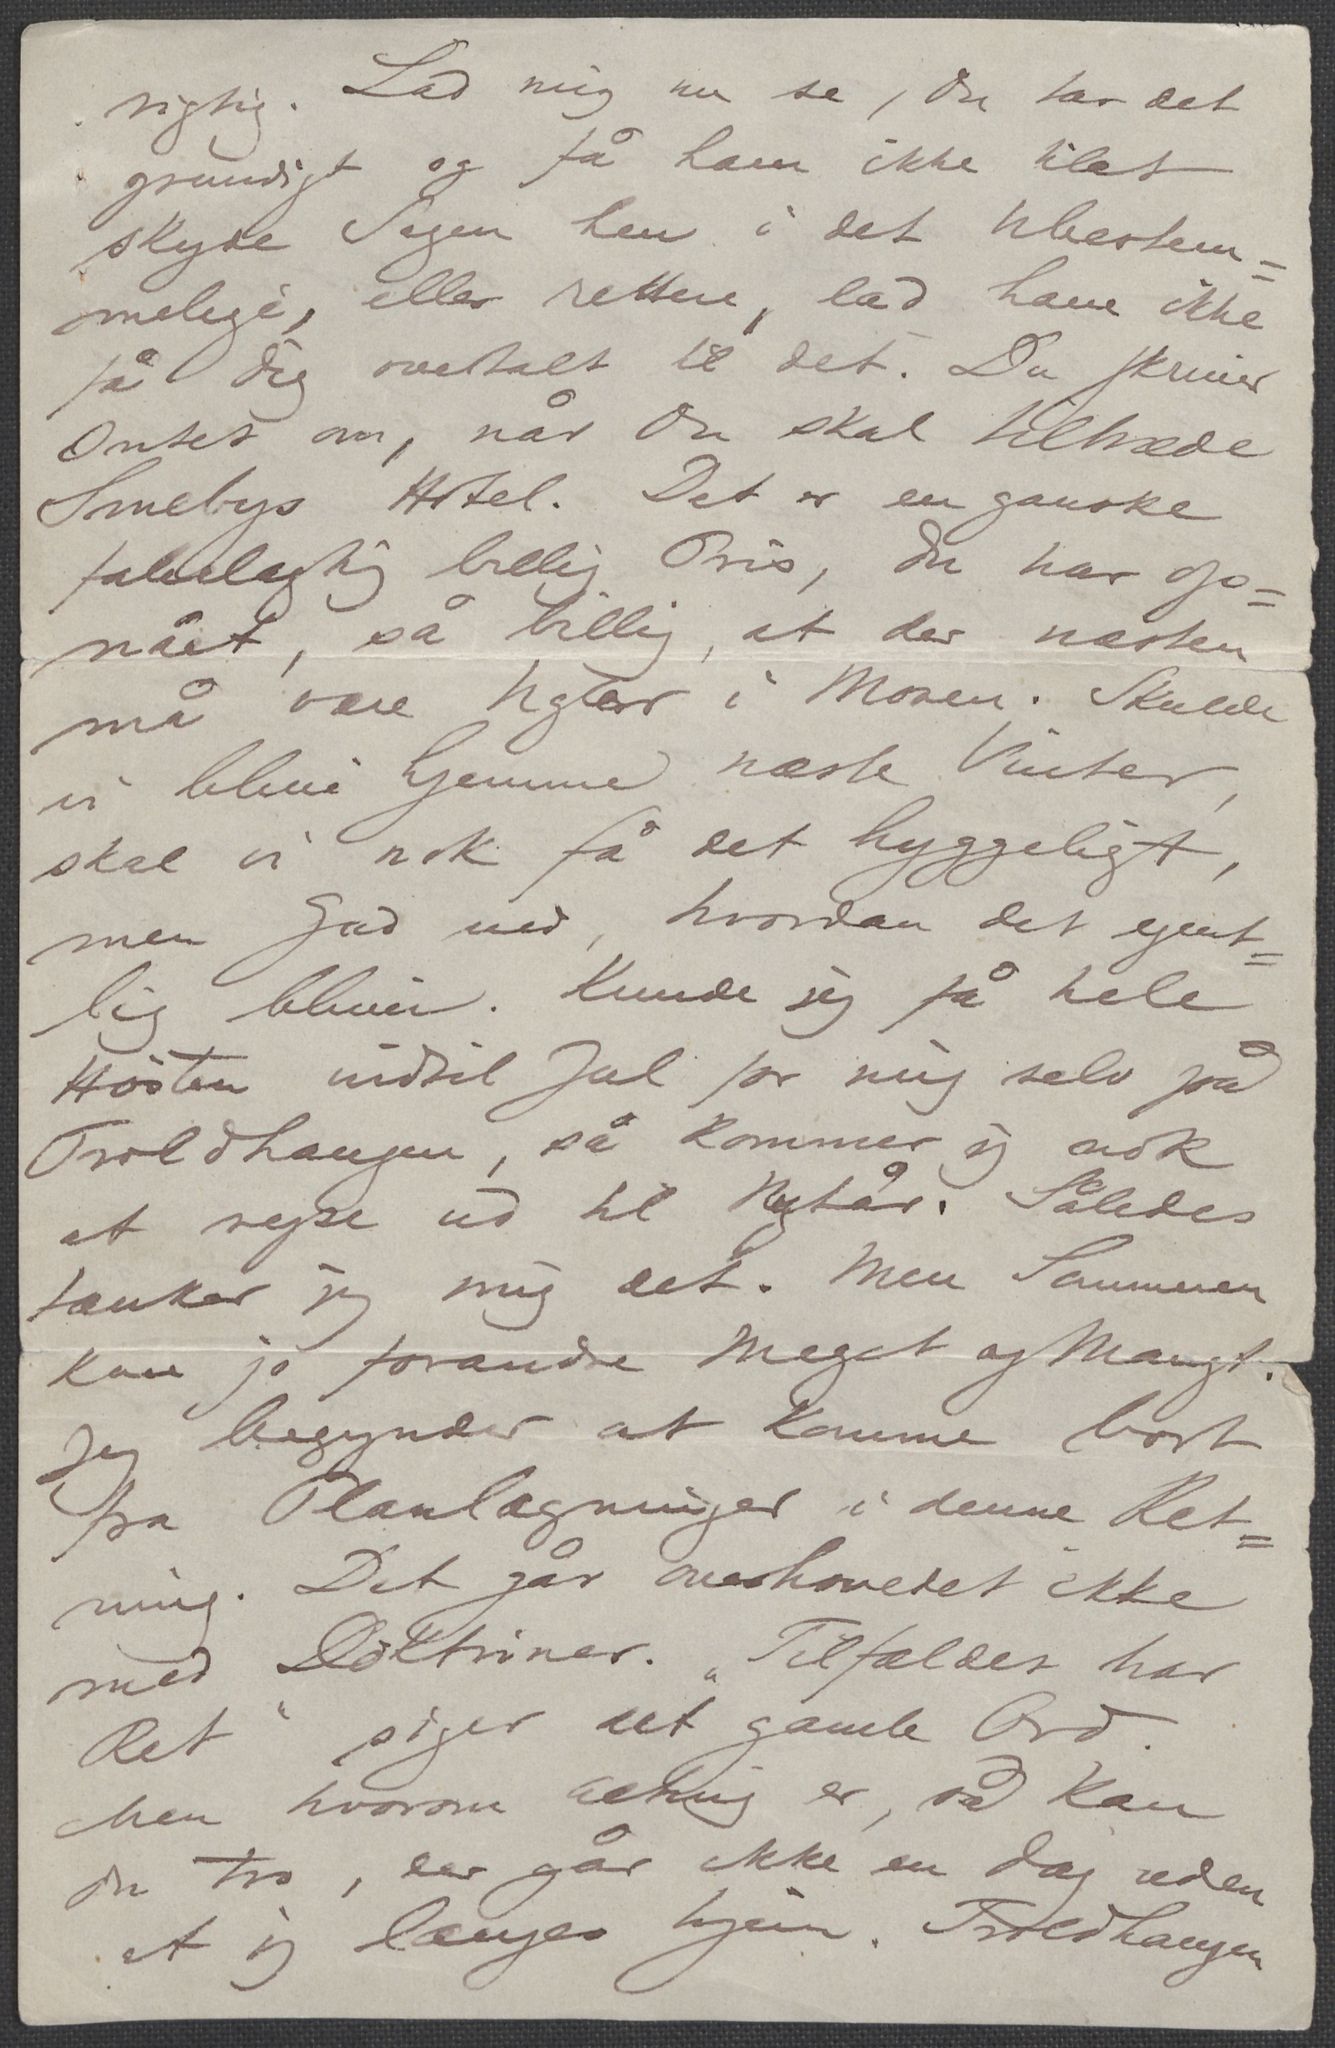 rigtig. Lad mig nu se, du tar det
grundigt og få ham ikke til at
skyde Sagen hen i det Ubestem=
melige, eller rettere, lad ham ikke
få dig overtalt til det. Du skriver
Intet om, når du skal tiltræde
Smebys Hotel. Det er en ganske
fabelagtig billig Pris, du har op=
nået, så billig, at der næsten
må være Ugler i Mosen. Skulde
vi blive hjemme næste Vinter,
skal vi nok få det hyggeligt,
men Gud ved, hvordan det egent=
lig bliver. Kunde jeg få hele
Hösten indtil Jul for mig selv på
Troldhaugen, så kommer jeg nok
at rejse ud til Nytår. Således
tænker jeg mig det. Men Sommeren
kan jo forandre Meget og Mangt.
Jeg begynder at komme bort
fra Planlægninger i denne Ret=
ning. Det går overhovedet ikke
med Doktriner. „Tilfældet har
Ret“ siger det gamle Ord.
Men hvorom alting er, så kan
du tro, der går ikke en Dag uden
at jeg længes hjem. Troldhaugen